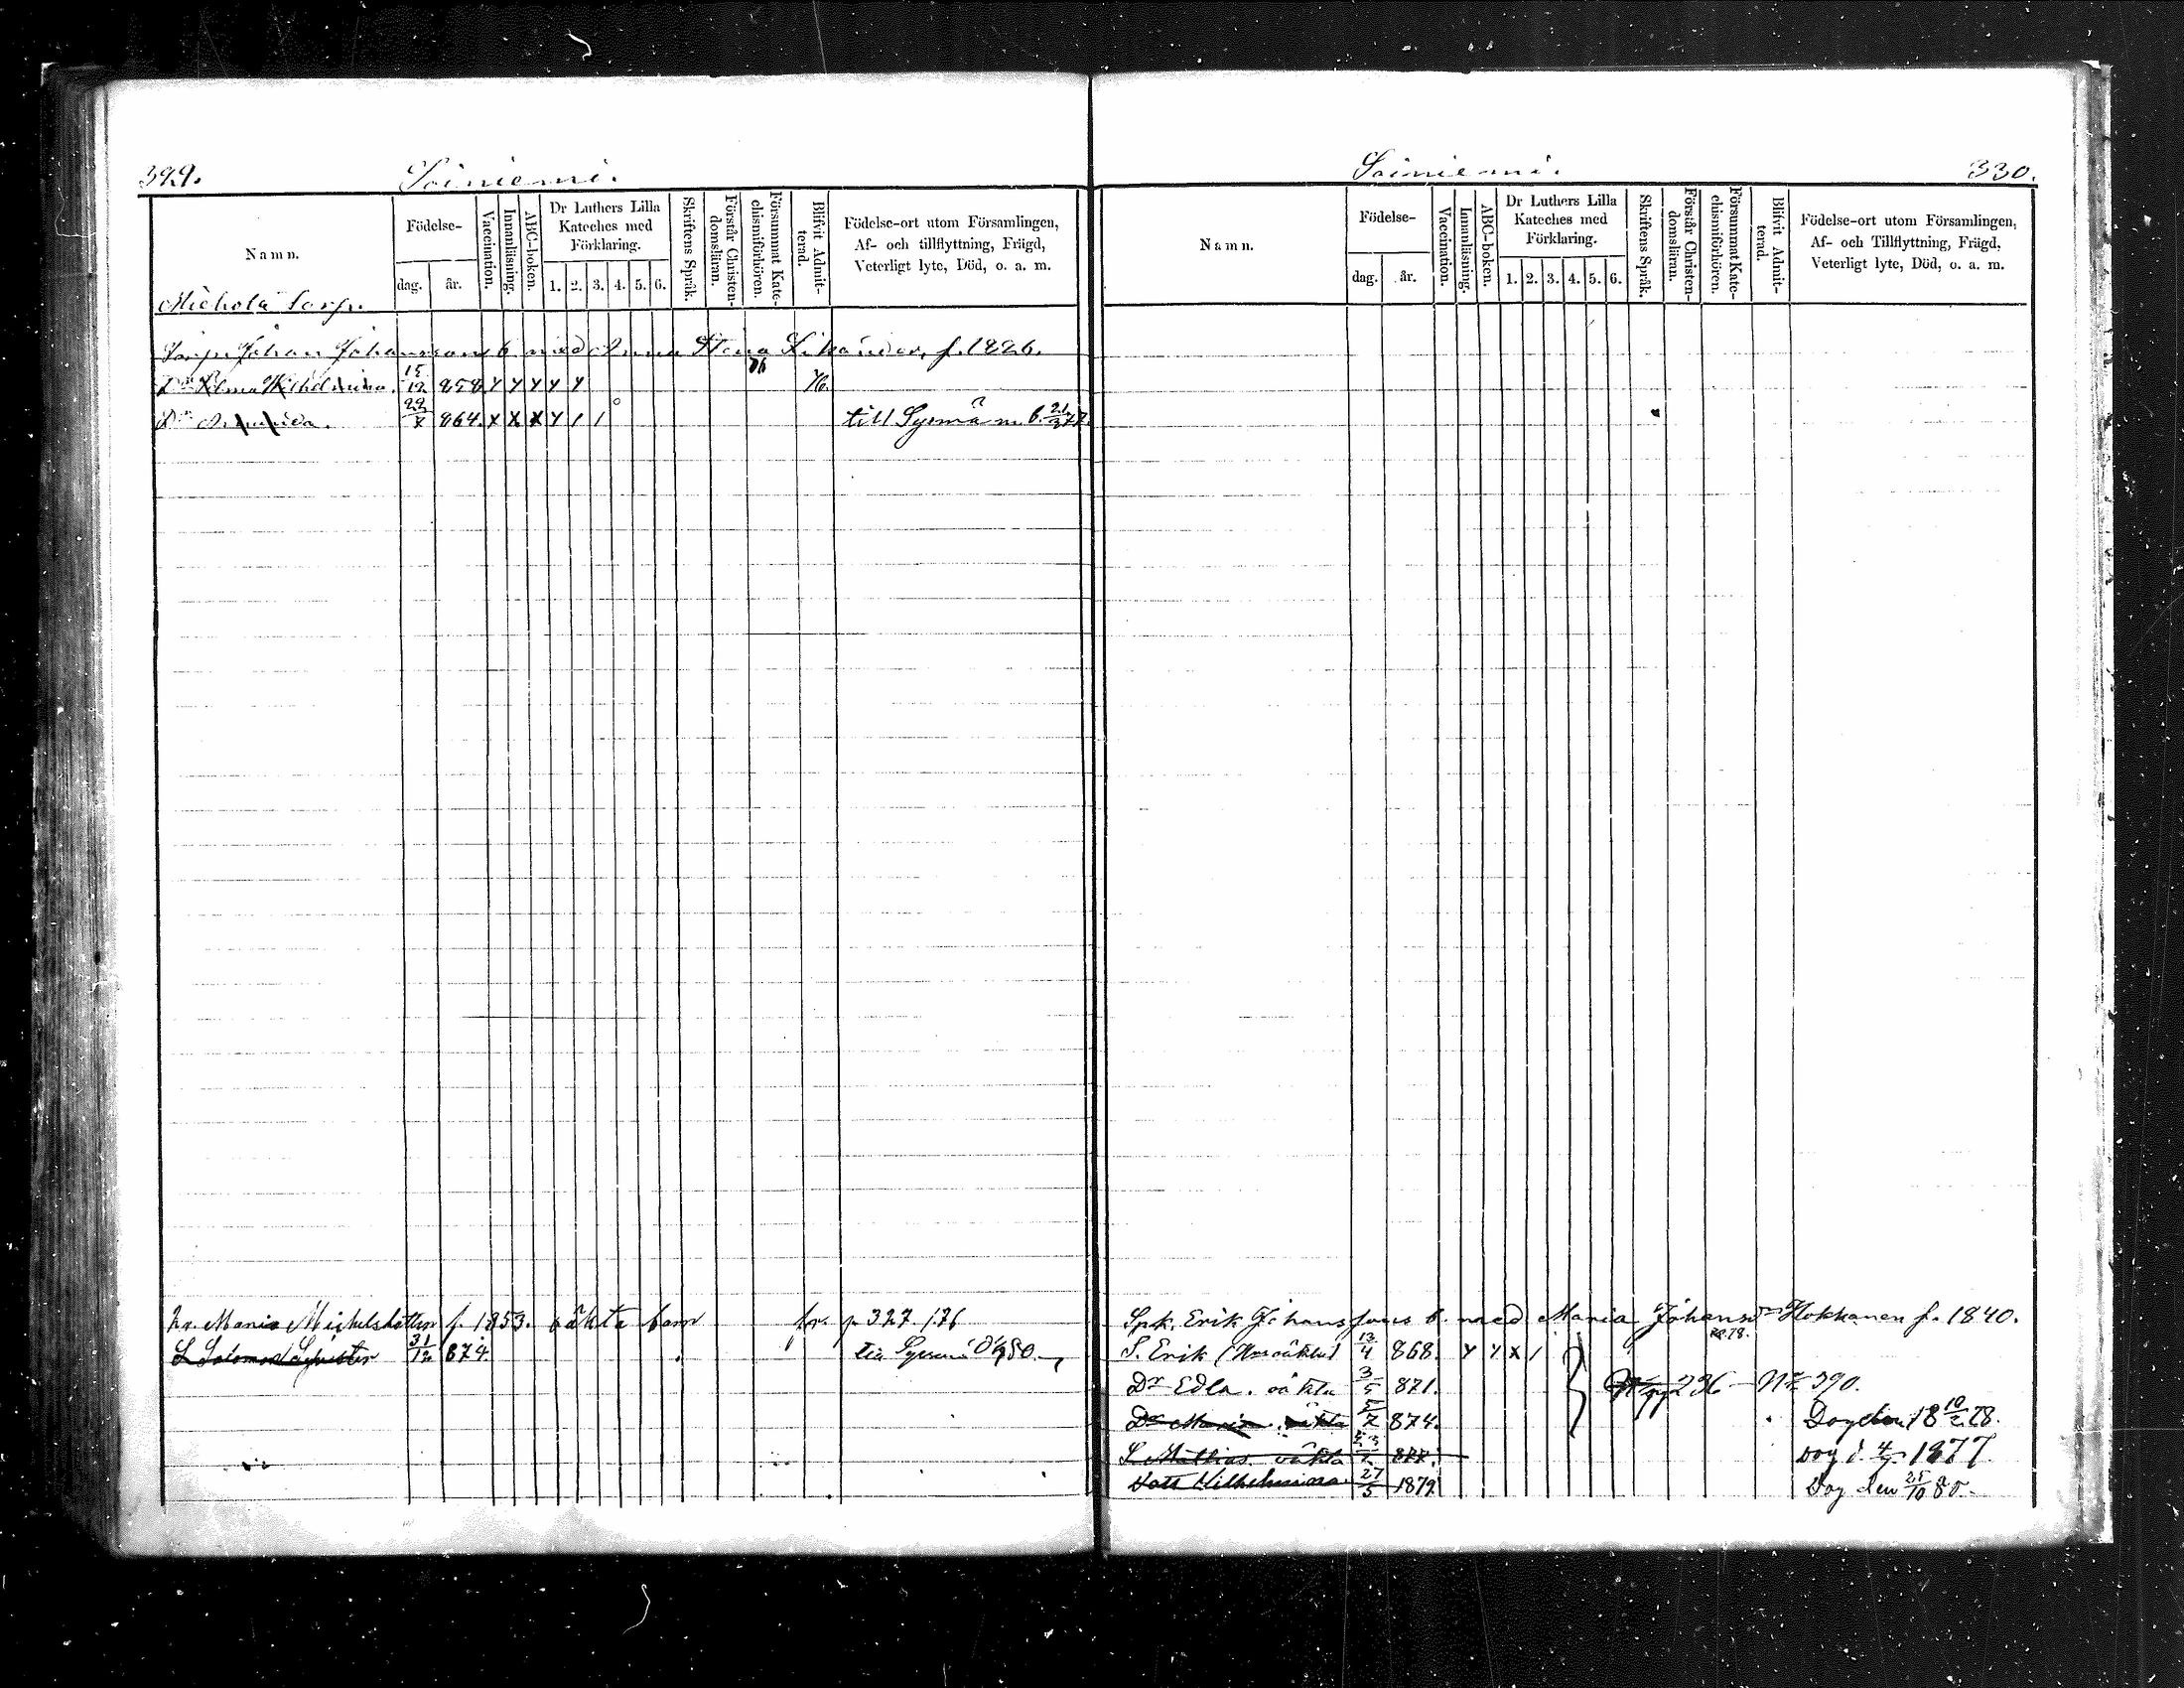 329. Soiniemi.
Namn. Födelse- dag. år. Vaccination. Innanläsning. ABC-boken. Dr Luthers Lilla Kateches med Förklaring. 1. 2. 3. 4. 5. 6. Skriftens Språk. Förstår Christendomsläran. Försummat Katechismiförhören. Blifvit Admitterad. Födelse-ort utom Församlingen, Af- och tillflyttning, Frägd, Veterligt lyte, Död, o. a. m.
Torp.
Johan Johanssons b. med Anna Stina f. 1826.
Dr Wilhelmina. 15/12 858. 76
Dr 864. till Sysmä m. b.
Maria f. 1853. oäkta barn fr. p 327. 176
S Salomon Sylvester 31/12 874.
Soiniemi. 330.
Namn. Födelse- dag. år. Vaccination. Innanläsning. ABC-boken. Dr Luthers Lilla Kateches med Förklaring. 1. 2. 3. 4. 5. 6. Skriftens Språk. Förstår Christendomsläran. Försummat Katechismiförhören. Blifvit Admitterad. Födelse-ort utom Församlingen, Af- och Tillflyttning, Frägd, Veterligt lyte, Död, o. a. m.
Spk. Erik Johanssons b. med Maria Johansdr Hokkanen f. 1840.
S. Erik 13/4 868.
Dr Edla. oäkta 3/5 871. 236 390.
Dr Maria oäkta 5/7 874. Dog den 18 10/2 78.
S Mathias oäkta 877. dog d. 1877.
Dott Vilhelmina 27/5 1879 Dog den 25/10 80.